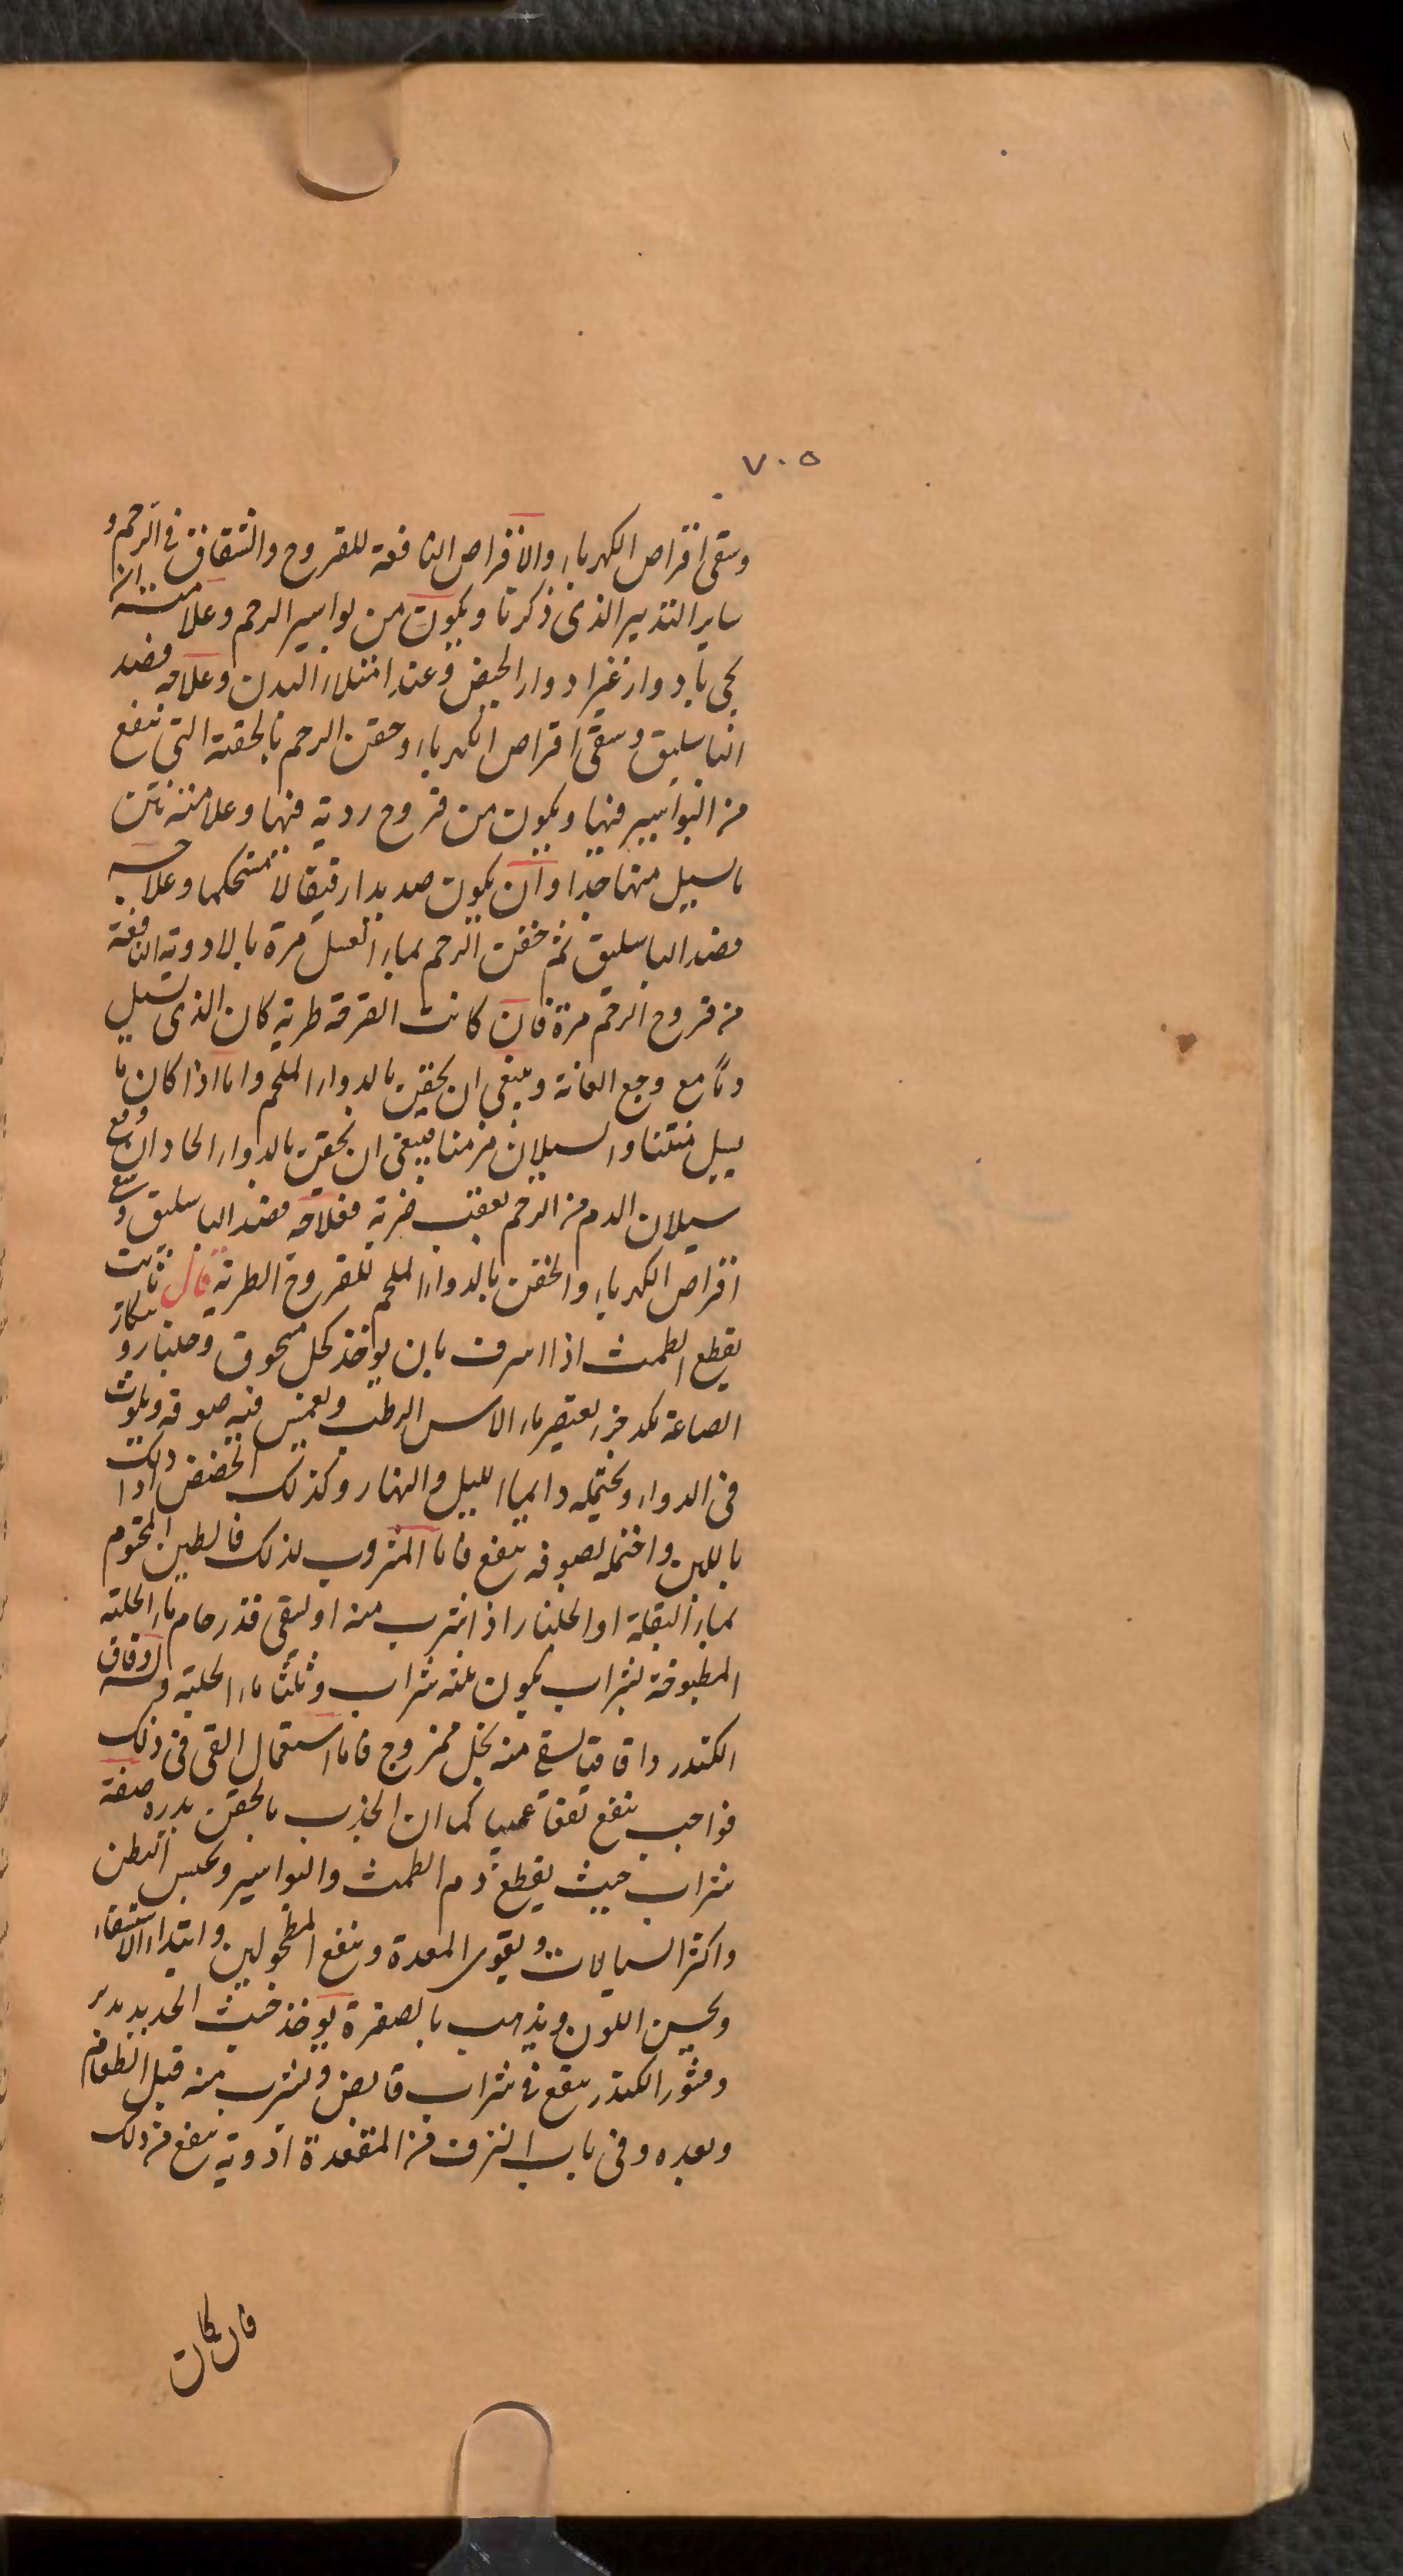 ٧٠٥
وسقى اقراص الكهرباء والاقراص النافعة للقروح والشقاق فى الرحم و
ساير التدبير الذى ذكرنا ويكون من بواسير الرحم وعلامته ان
يجى بادوار غير ادوار الحيض وعند امتلاء البدن وعلاجه فصد
الباسليق وسقى اقراص الكهرباء وحقن الرحم بالحقنة التى تنفع
من البواسير فيها ويكون من قروح ردية فيها وعلامته نتن
ما يسيل منها جدا وان يكون صديدا رقيقا لا مستحكما وعلاجه
فصد الباسليق ثم حقن الرحم بماء العسل مرة بالادوية النافعة
من قروح الرحم مرة فان كانت القرحة طرية كان الذى يسيل
دما مع وجع العانة وينبغى ان يحقن بالدواء الملحم واما اذا كان ما
يسيل منتنا والسيلان مزمنا فينبغى ان يحقن بالدواء الحاد ان وقع
سيلان الدم من الرحم بعقب ضربة فعلاجه فصد الباسليق وسقى
اقراص الكهرباء والحقن بالدواء الملحم للقروح الطرية قال ثابت
يقطع الطمث اذا اسرف بان يوخذ كحل مسحوق وجلنار و
الصاغة يعتصر ماء الاس الرطب ويغمس فيه صوفة ويلوث
فى الدواء وتحتمله دايما الليل والنهار وكذلك الحضض اذا دلك
باللبن واحتمل بصوفة ينفع فاما المشروب لذلك فالطين المختوم
بماء البقلة او الجلنار اذا شرب منه او يسقى قدر جام ماء الحلبة
المطبوخة بشراب يكون ثلثه شراب وثلثا ماء الحلبة ودقاق
الكندر واقاقيا يسقى منه بخل ممزوج فاما استعمال القى فى ذلك
فواجب ينفع نفعا عجيبا كما ان الجذب بالحقن يدره صفة
شراب خبث يقطع دم الطمث والبواسير ويحبس البطن
واكثر السيالات ويقوى المعدة وينفع المطحولين وابتداء الاستسقاء
ويحسن اللون ويذهب بالصفرة يوخذ خبث الحديد
وقشور الكندر ينقع فى شراب قابض ويشرب منه قبل الطعام
وبعده وفى باب النزف من المقعدة ادوية تنفع من ذلك
فان كان